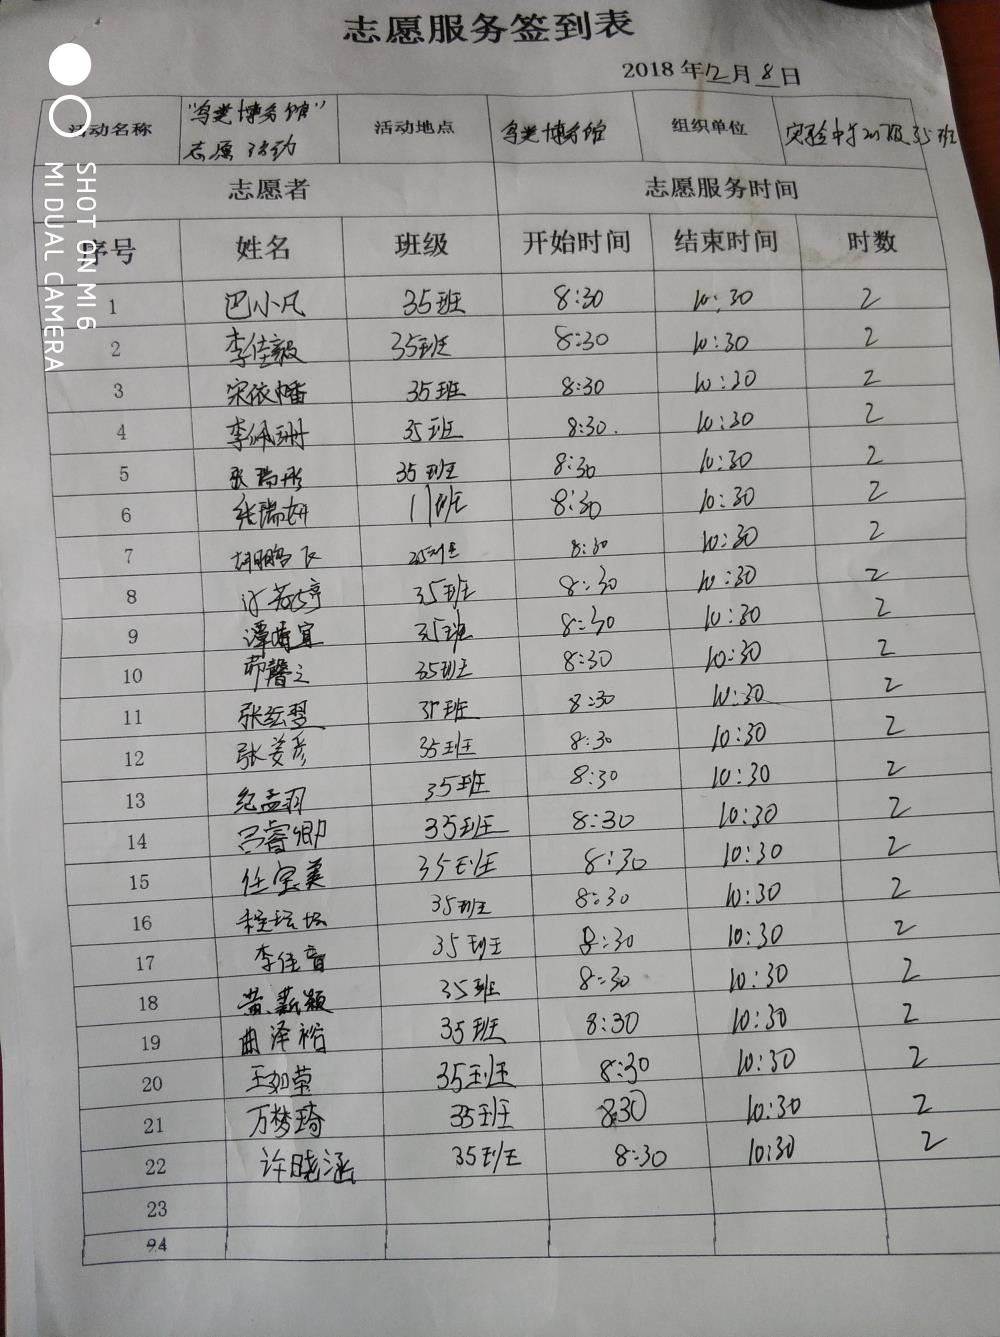 志愿服务签到表
2018 年 12 月 8 日
活动名称 志愿活动 活动地点 博务馆 组织单位 实验中学 级35班
志愿者 志愿服务时间
序号 姓名 班级 开始时间 结束时间 时数
1 巴小凡 35班 8:30 10:30 2
2 李佳毅 35班 8:30 10:30 2
3 宋依幡 35班 8:30 10:30 2
4 李佩珊 35班 8:30. 10:30 2
5 张瑞彤 35班 8:30 10:30 2
6 张瑞妍 11班 8:30 10:30 2
7 胡鹏飞 35班 8:30 10:30 2
8 许 婷 35班 8:30 10:30 2
9 谭 宜 35班 8:30 10:30 2
10 茆馨之 35班 8:30 10:30 2
11 张纭翌 35班 8:30 10:30 2
12 张姜彦 35班 8:30 10:30 2
13 纪孟羽 35班 8:30 10:30 2
14 吕睿卿 35班 8:30 10:30 2
15 任宝美 35班 8:30 10:30 2
16 程坛坛 35班 8:30 10:30 2
17 李佳音 35班 8:30 10:30 2
18 黄薪颖 35班 8:30 10:30 2
19 曲泽裕 35班 8:30 10:30 2
20 王如莹 35班 8:30 10:30 2
21 万梦琦 35班 8:30 10:30 2
22 许晓涵 35班 8:30 10:30 2
23
24
SHOT ON MI 6
MI DUAL CAMERA